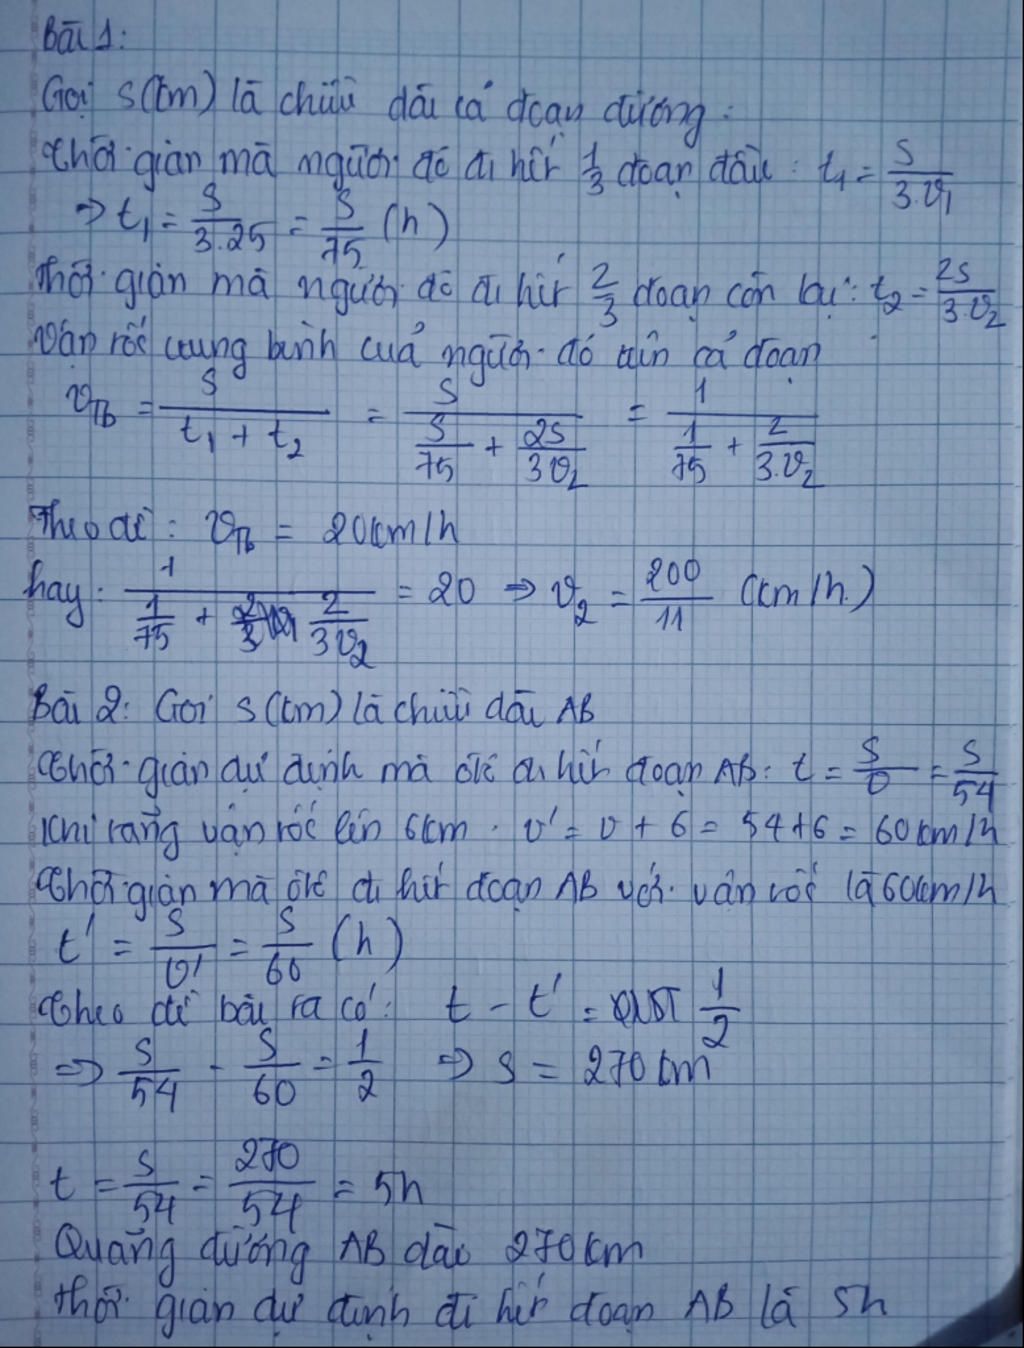 Bài 1:
Gọi s(km) là chiều dài cả đoạn đường.
Thời gian mà người đó đi hết 1/3 đoạn đầu: t₁ = s/(3.v₁)
⇒ t₁ = s/(3.25) = s/75 (h)
Thời gian mà người đó đi hết 2/3 đoạn còn lại: t₂ = 2s/(3.v₂)
Vận tốc trung bình của người đó trên cả đoạn
v_Tb = s/(t₁ + t₂) = s/(s/75 + 2s/(3v₂)) = 1/(1/75 + 2/(3.v₂))
Theo đề: v_Tb = 20km/h
hay: 1/(1/75 + 2/(3v₂)) = 20 ⇒ v₂ = 200/11 (km/h)
Bài 2: Gọi s(km) là chiều dài AB
Thời gian dự định mà ôtô đi hết đoạn AB: t = s/v = s/54
Khi tăng vận tốc lên 6km. v' = v + 6 = 54+6 = 60km/h
Thời gian mà ôtô đi hết đoạn AB với vận tốc là 60km/h
t' = s/v' = s/60 (h)
Theo đề bài ra có: t - t' = 1/2
⇒ s/54 - s/60 = 1/2 ⇒ s = 270km
t = s/54 = 270/54 = 5h
Quãng đường AB dài 270km
Thời gian dự định đi hết đoạn AB là 5h